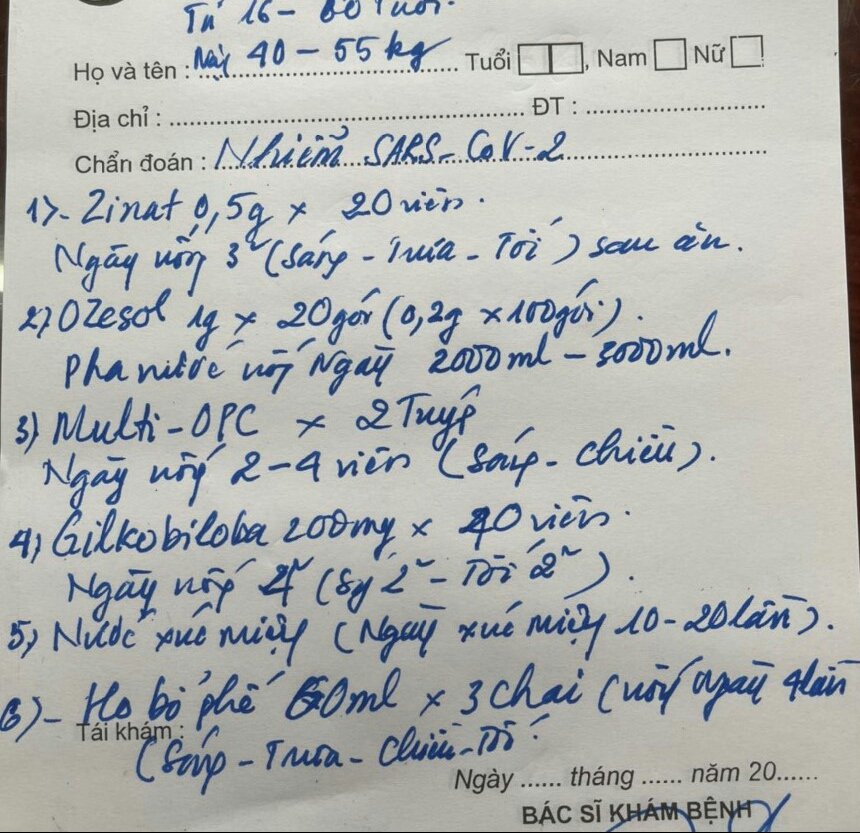 Từ 16 - 60 Tuổi.
Họ và tên : Nặng 40 - 55 kg Tuổi , Nam Nữ
Địa chỉ : ĐT :
Chẩn đoán : Nhiễm SARS-CoV-2
1) - Zinat 0,5g x 20 viên.
Ngày uống 3v (Sáng - Trưa - Tối) sau ăn.
2) Ozesol 1g x 20 gói (0,2g x 100 gói).
Pha nước uống Ngày 2000ml - 3000ml.
3) Multi-OPC x 2 Tuýp
Ngày uống 2-4 viên (Sáng - chiều).
4) Gilkobiloba 200mg x 40 viên.
Ngày uống 4v (Sg 2v - Tối 2v).
5) Nước xúc miệng (Ngày xúc miệng 10-20 lần).
6) - Ho bổ phế 60ml x 3 chai (uống ngày 4 lần
Tái khám : (Sáng - Trưa - Chiều - Tối
Ngày ...... tháng ...... năm 20......
BÁC SĨ KHÁM BỆNH